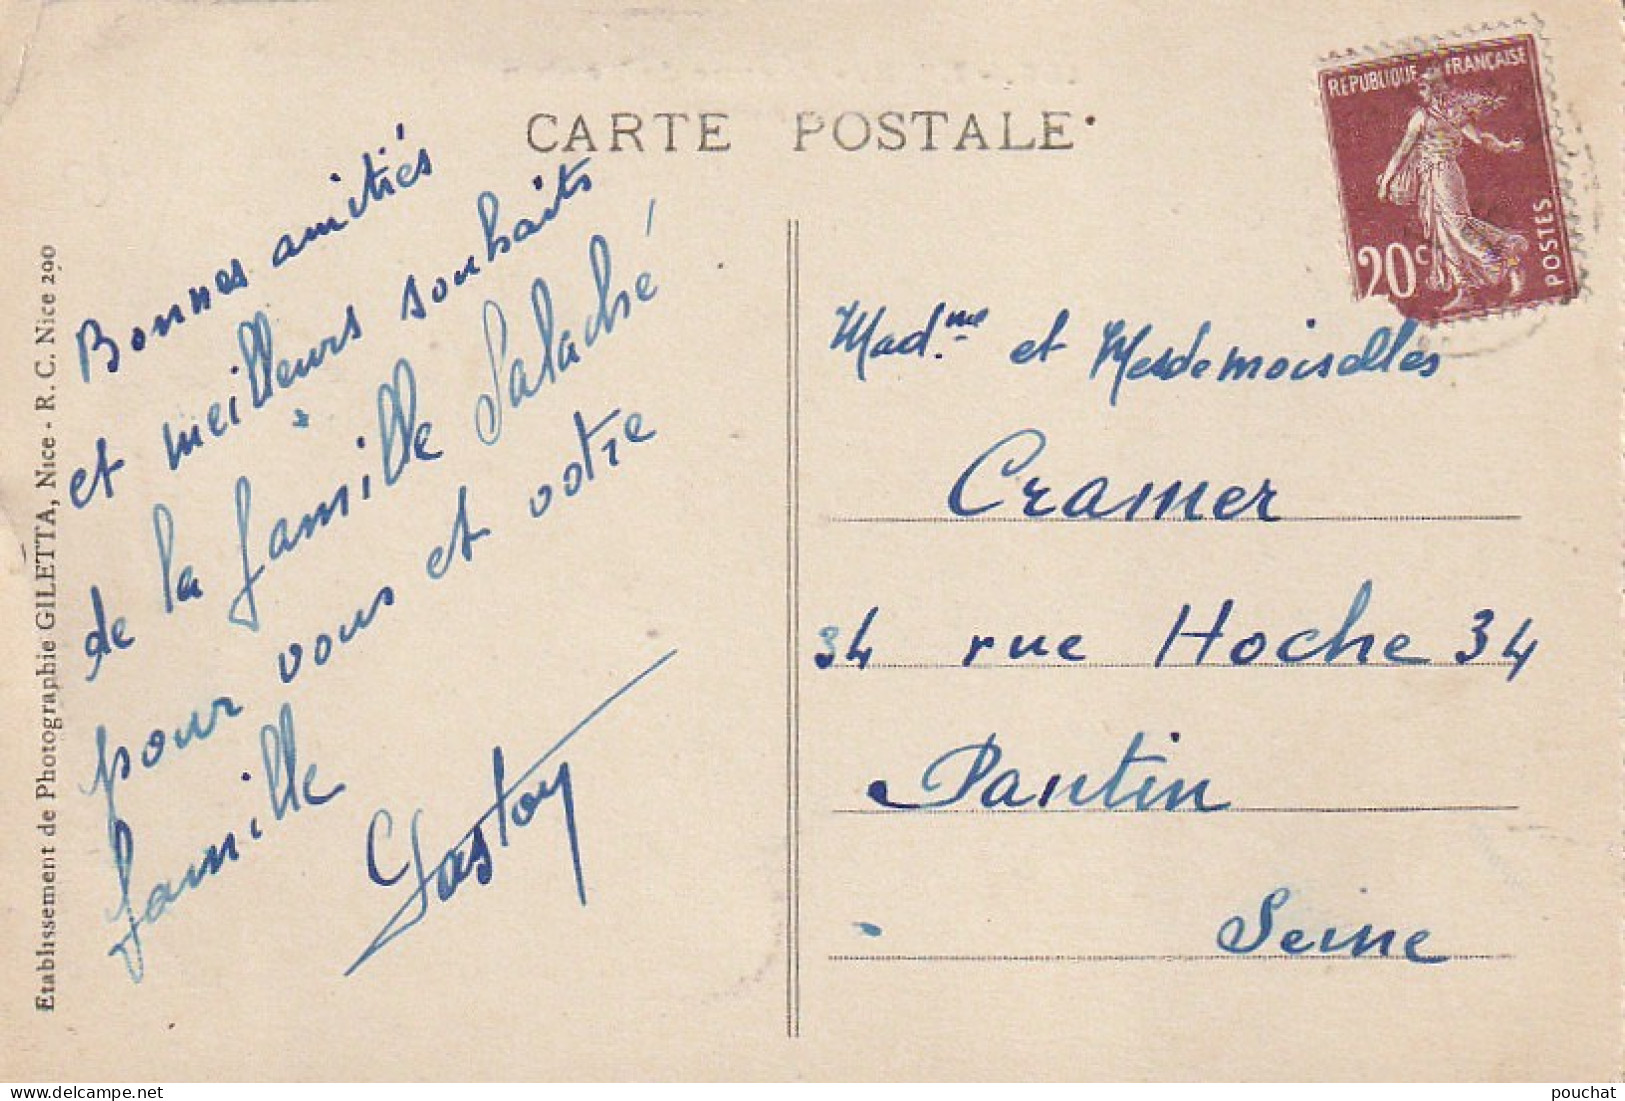 CARTE POSTALE
REPUBLIQUE FRANÇAISE
20c
POSTES
Etablissement de Photographie GILETTA, Nice - R. C. Nice 290
Bonnes amitiés
et meilleurs souhaits
de la famille Salaché
pour vous et votre
famille
Gaston
Mad.me et Mesdemoiselles
Cramer
34 rue Hoche 34
Pantin
Seine
pouchat